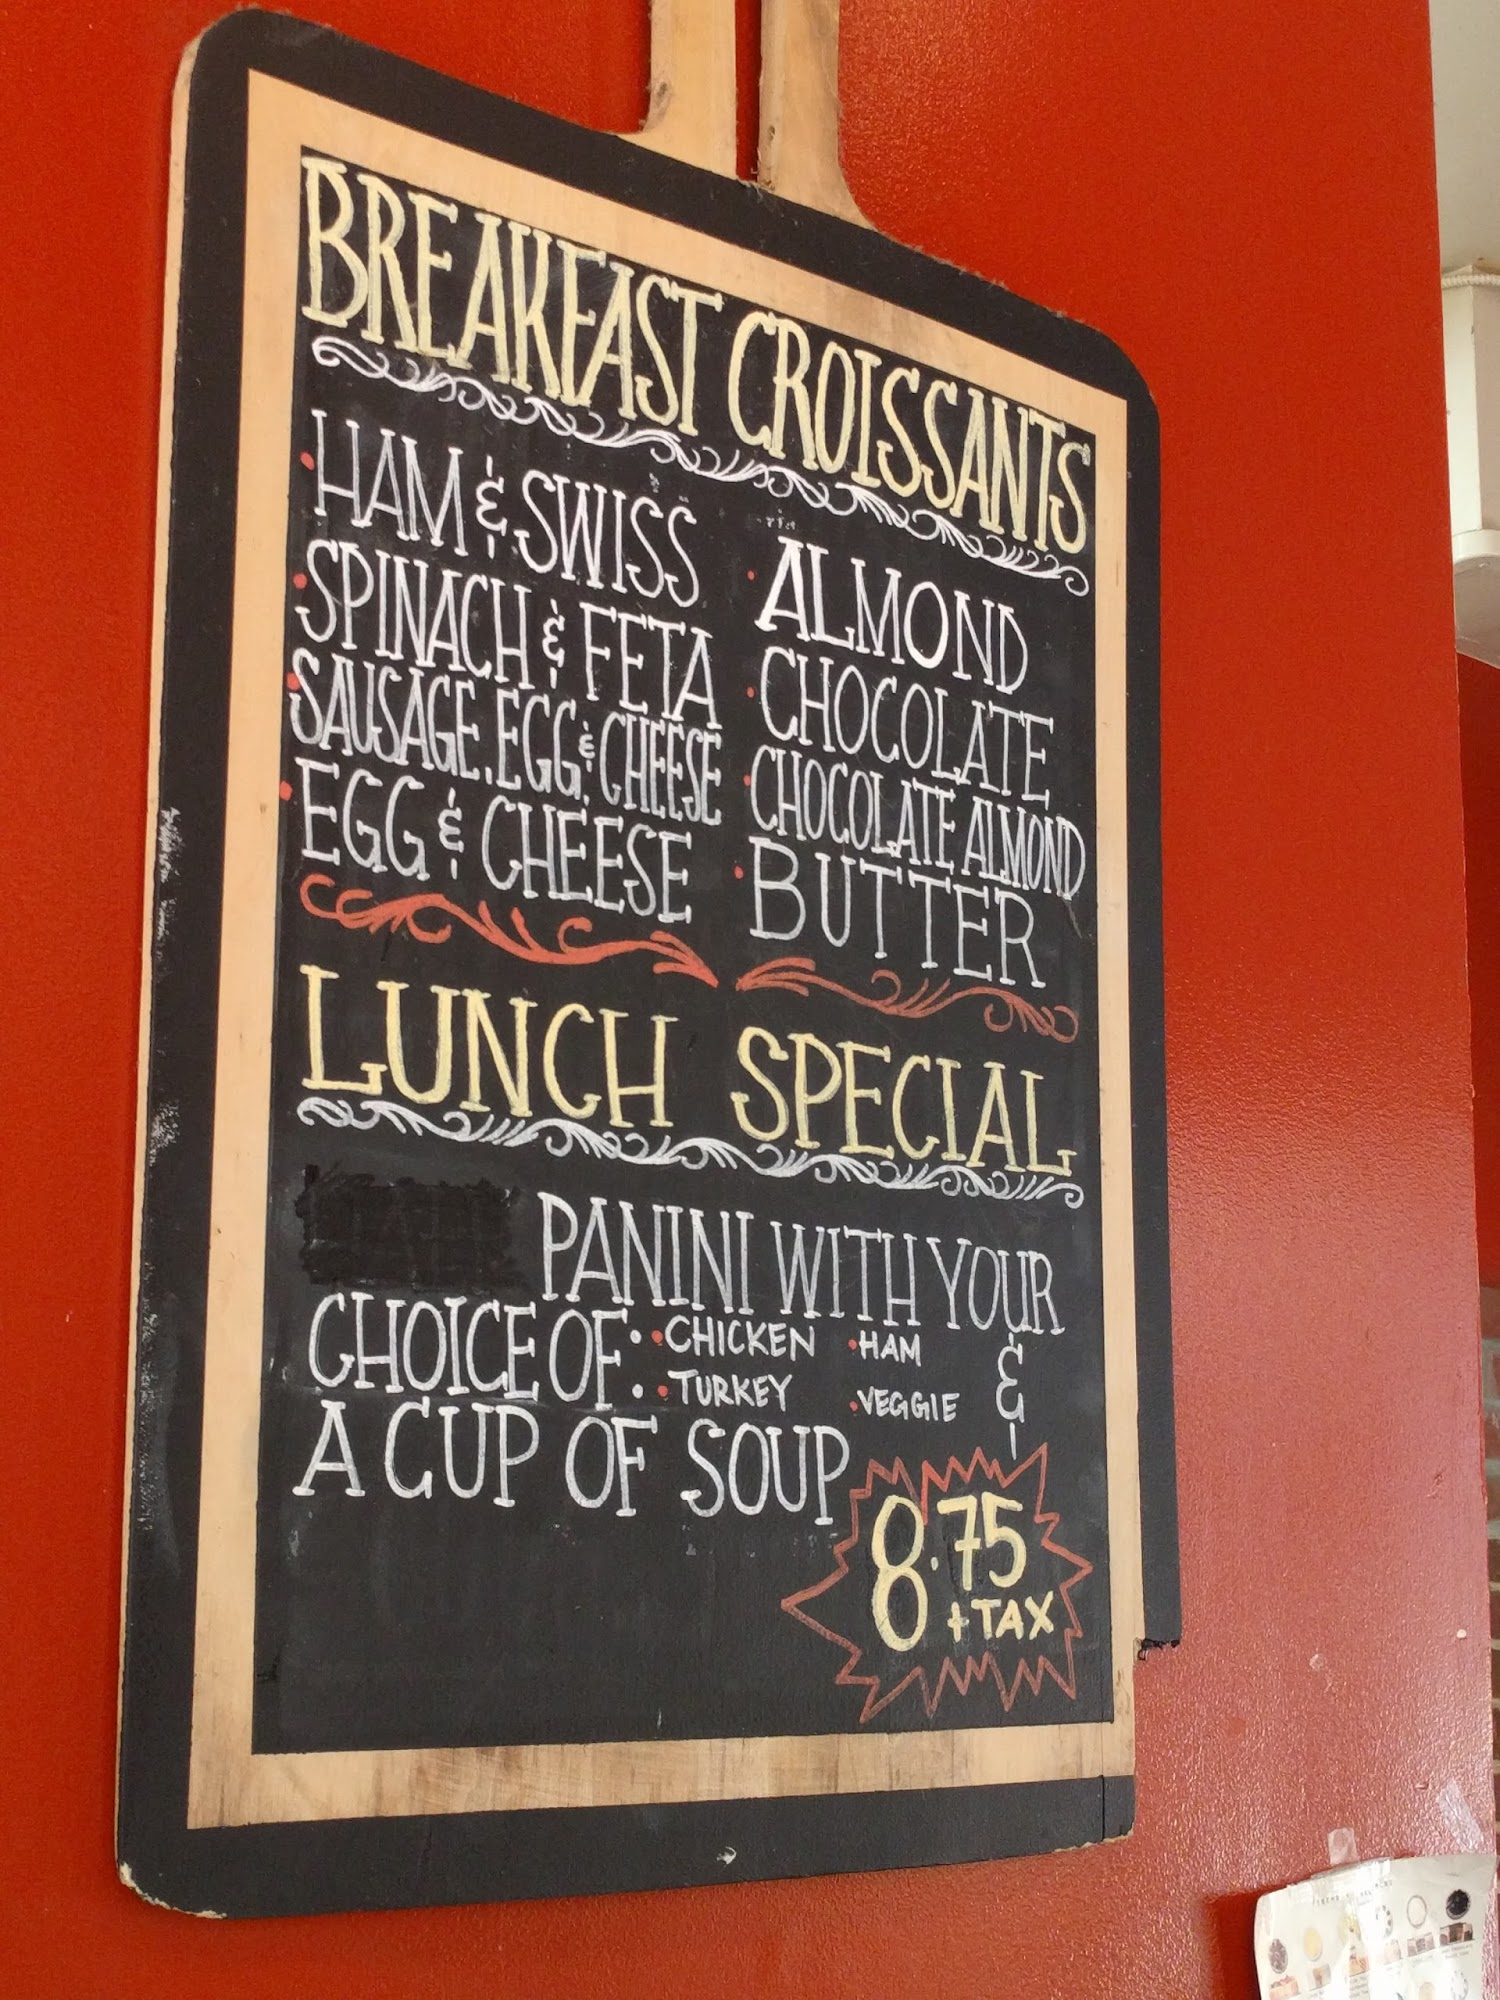 BREAKFAST CROISSANTS
• HAM & SWISS
• SPINACH & FETA
• SAUSAGE, EGG, & CHEESE
• EGG & CHEESE
• ALMOND
• CHOCOLATE
• CHOCOLATE ALMOND
• BUTTER
LUNCH SPECIAL
PANINI WITH YOUR
CHOICE OF: • CHICKEN • HAM &
• TURKEY • VEGGIE
A CUP OF SOUP
8.75
+ TAX